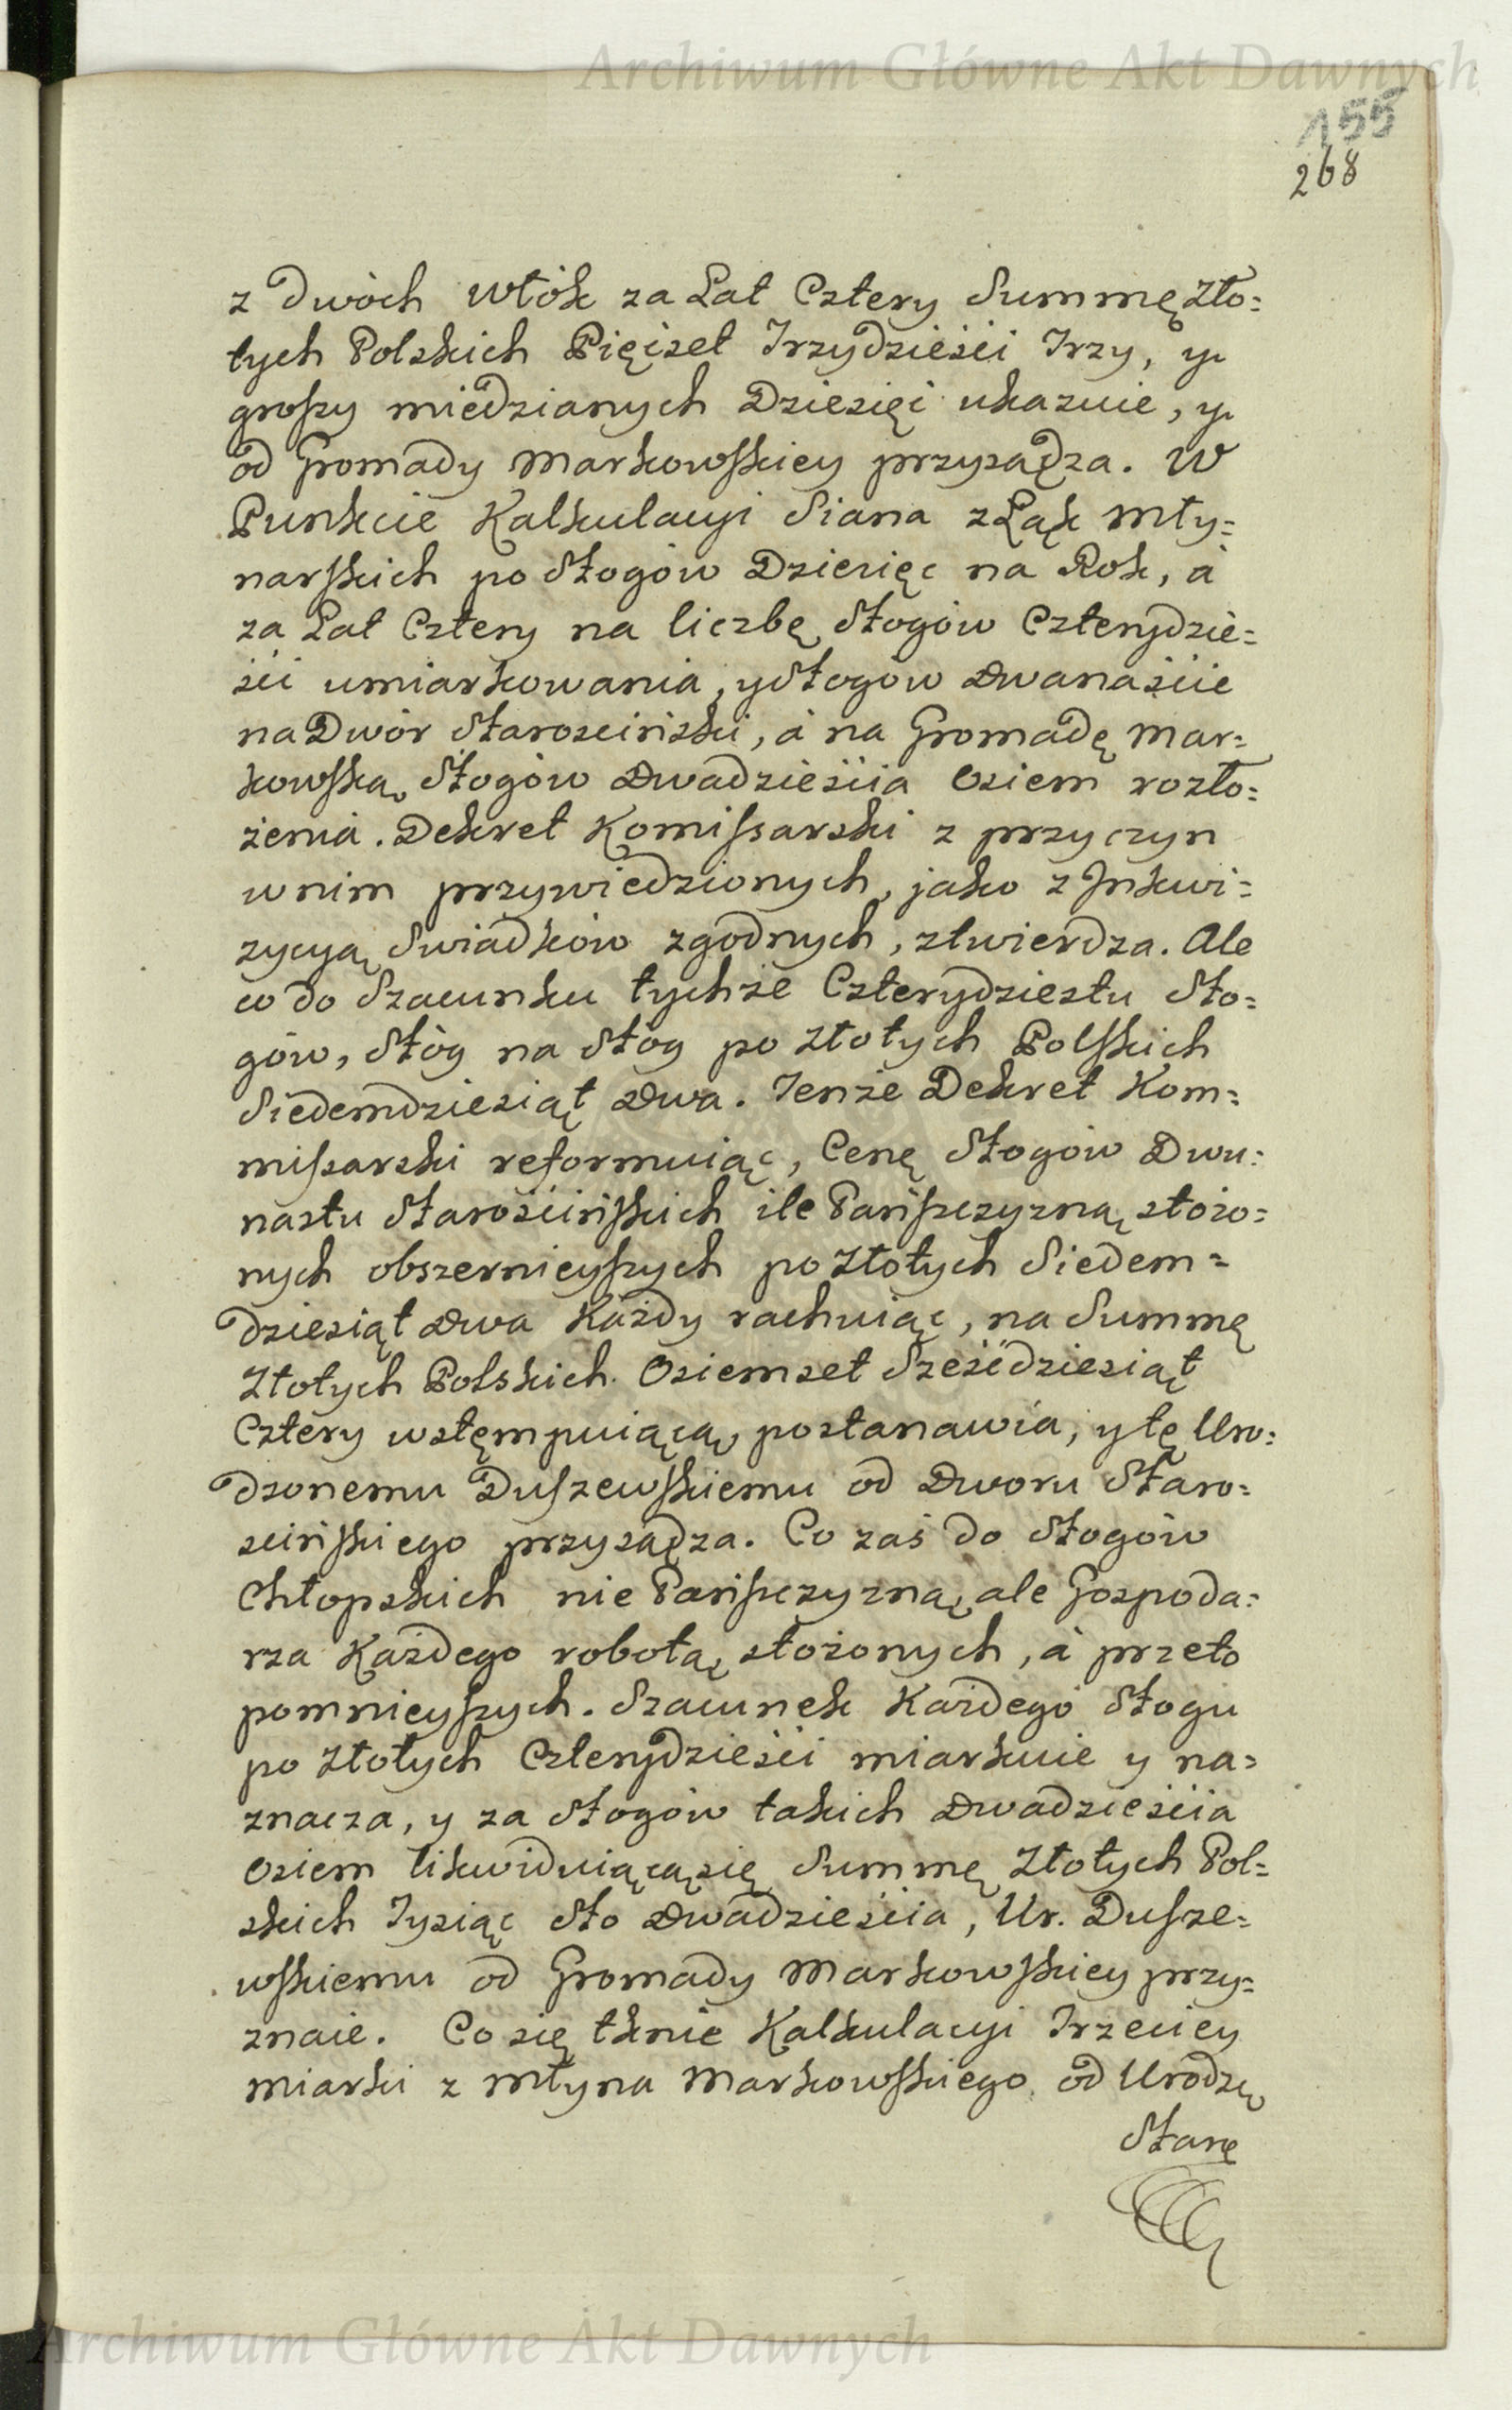 Archiwum Główne Akt Dawnych
155
268
z Dwóch Włók za Lat Cztery Summę Zło=
tych Polskich Pięćset Trzydzieści Trzy, y
groszy miedzianych Dziesięć ukazuie, y
od Gromady Markowskiey przysądza. W
Punkcie Kalkulacyi Siana z Łąk Mły=
narskich po Stogów Dziesięć na Rok, á
za Lat Cztery na liczbę Stogów Czterydzie=
ści umiarkowania, y Stogów Dwanaście
na Dwór Starościński, á na Gromadę Mar=
kowską Stogów Dwadzieścia Osiem rozło=
żenia. Dekret Komissarski z przyczyn
w nim przywiedzionych, jako z Inkwi=
zycyą Swiadków zgodnych, ztwierdza. Ale
co do Szacunku tychże Czterydziestu Sto=
gów, Stóg na Stóg po Złotych Polskich
Siedemdziesiąt Dwa. Tenże Dekret Kom=
missarski reformuiąc, Cenę Stogów Dwu=
nastu Starościńskich ile Pańszczyzną stożo=
nych obszernieyszych po Złotych Siedem=
dziesiąt Dwa Każdy rachuiąc, na Summę
Złotych Polskich Osiemset Sześćdziesiąt
Cztery wstępmpuiącą postanawia, y tę Uro=
dzonemu Duszewskiemu od Dworu Staro=
scińskiego przysądza. Co zaś do Stogów
Chłopskich nie Pańszczyzną, ale Gospoda=
rza Każdego robotą stożonych, á przeto
pomnieyszych. Szacunek Każdego Stogu
po Złotych Czterydzieści miarkuie y na=
znacza, y za Stogów takich Dwadzieścia
Osiem likwiduiącą się Summę Złotych Pol=
skich Tysiąc Sto Dwadzieścia, Ur. Dusze=
wskiemu od Gromady Markowskiey przy=
znaie. Co się tknie Kalkulacyi Trzeciey
miarki z Młyna Markowskiego od Urodzo
Starę
Archiwum Główne Akt Dawnych